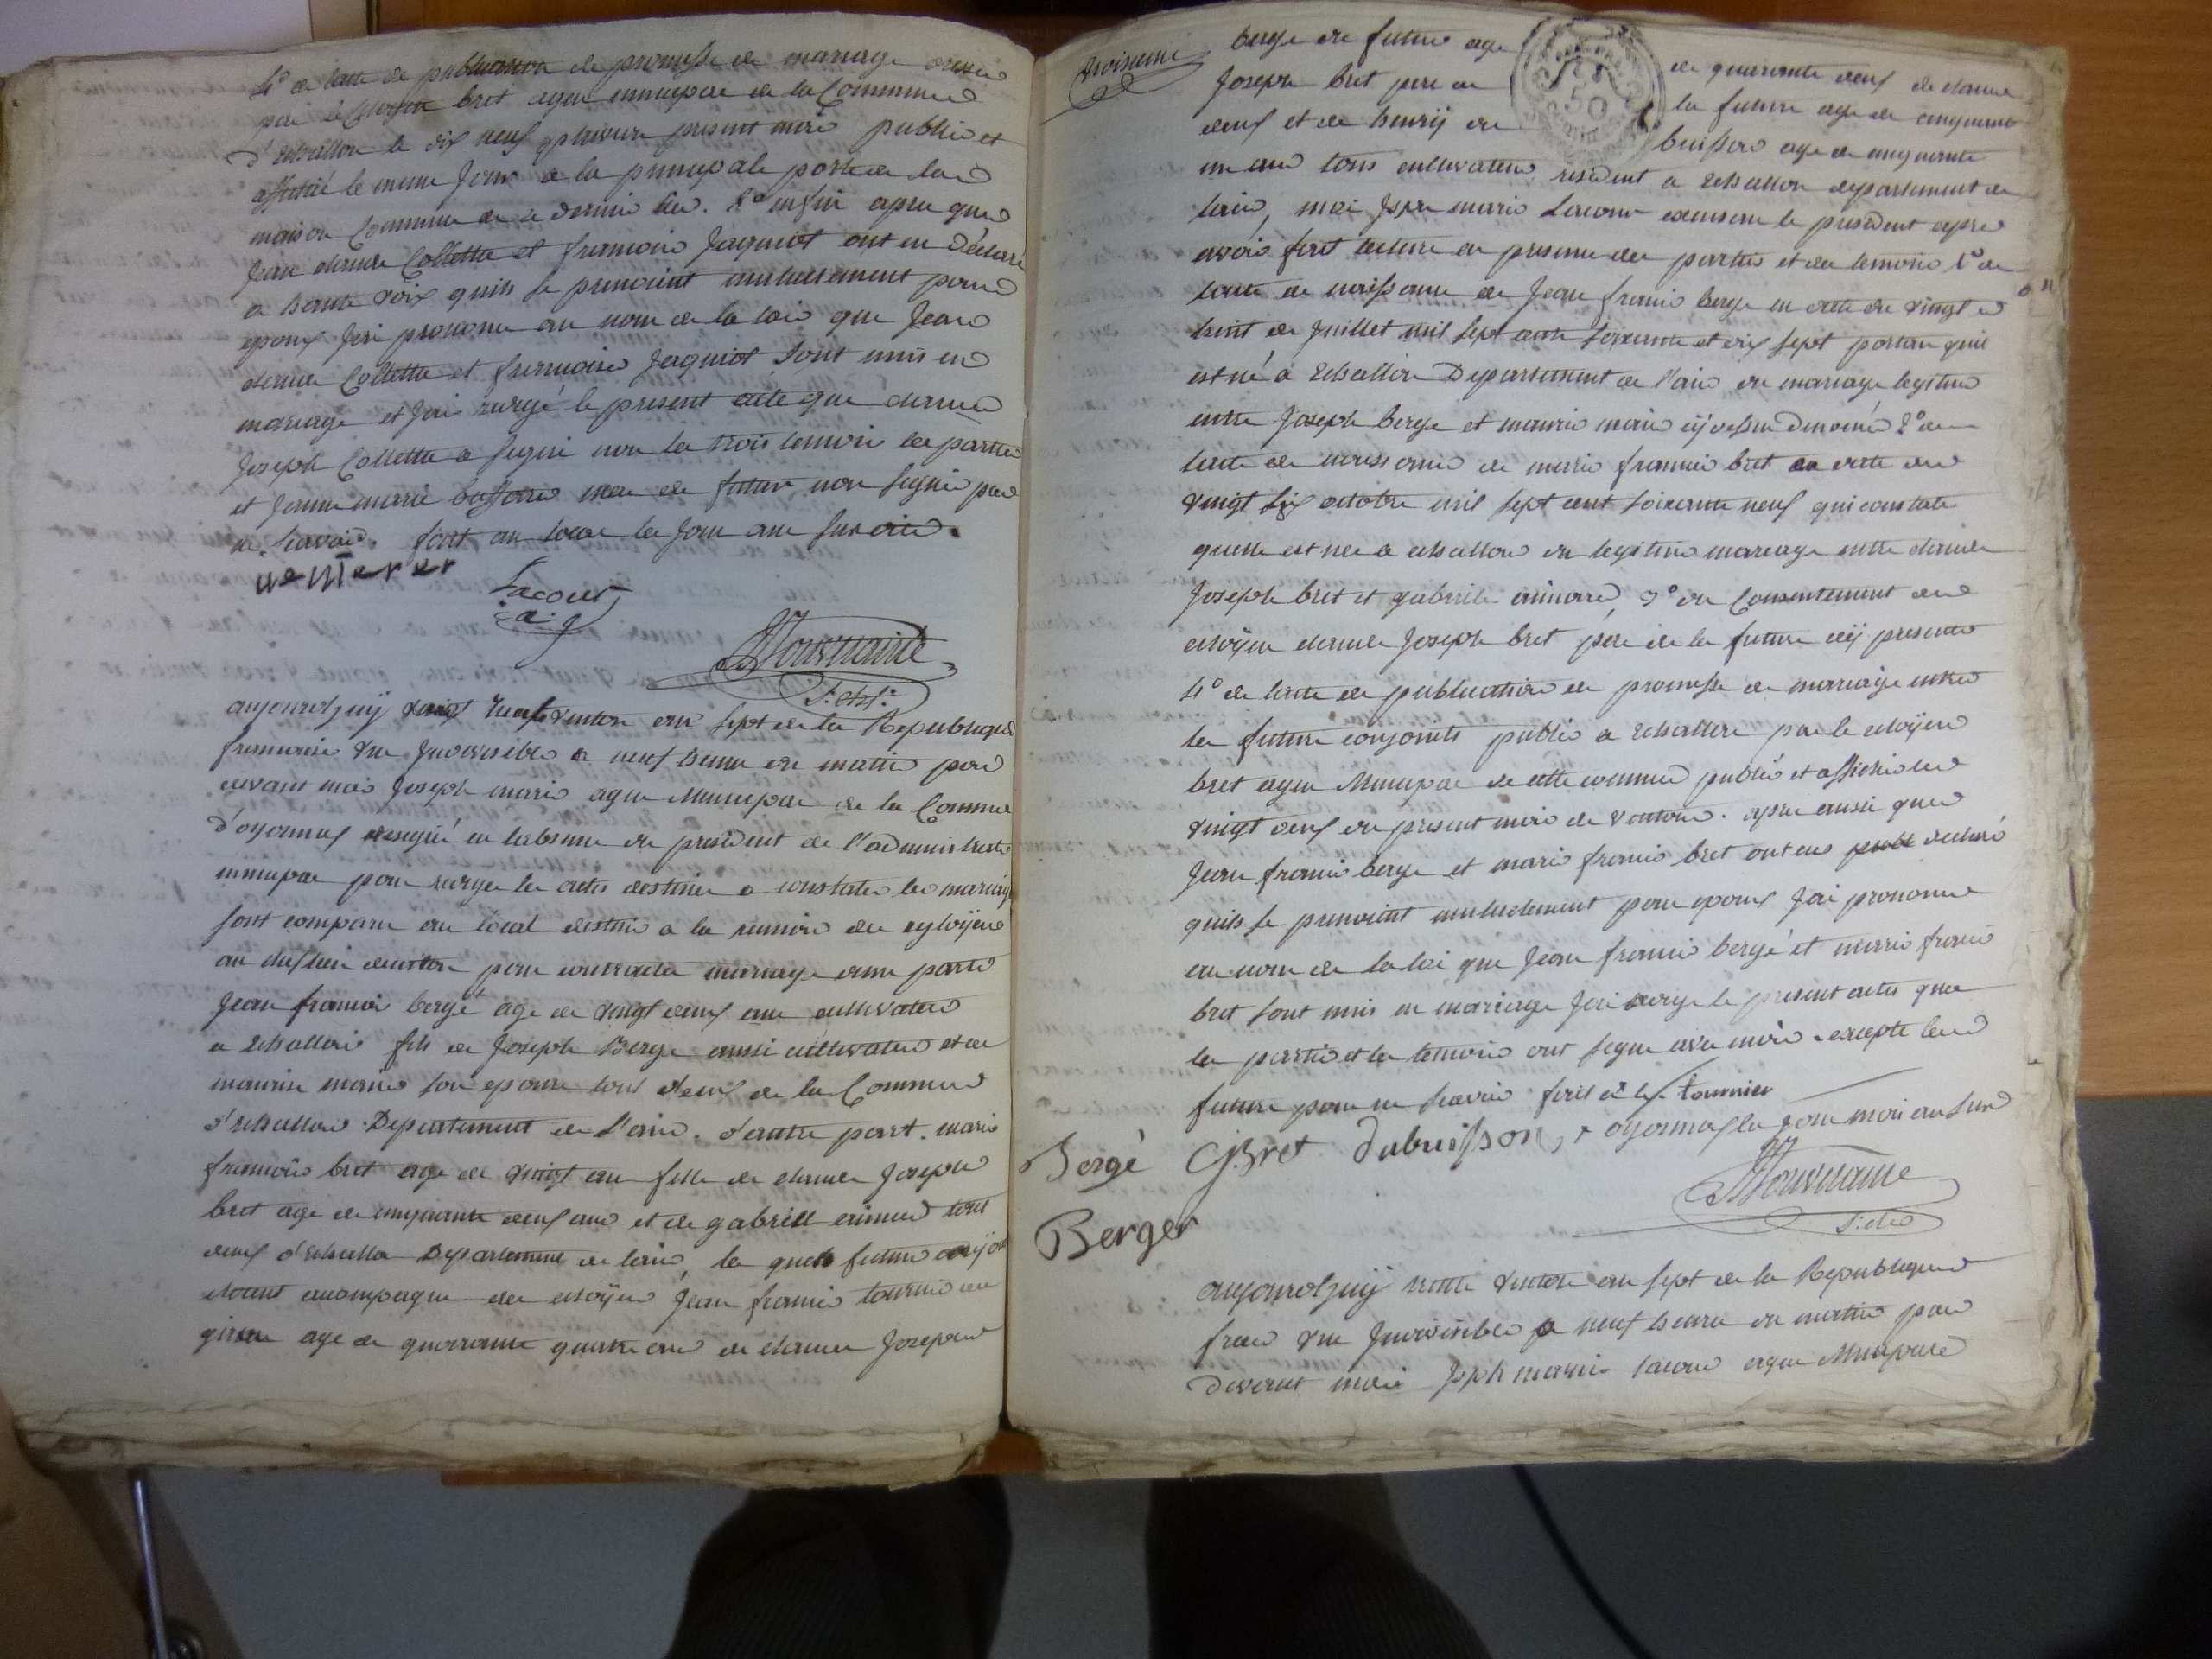 4° de lacte de publication de promesse de mariage dressé
par le Citoyen bret agen municipal de la Commune
d'echallon le dix neuf pluviose present mois publié et
affiché le meme Jour a la principale porte de la
maison Commune de ce dernier lieu. 5° enfin apres que
Jean claude Collette et francoise Jaquiot ont eu déclaré
a haute voix quils se prenoient mutuelement pour
epoux Jai prononcé au nom de la loi que Jean
claude Collette et francoise Jaquiot sont unis en
mariage et Jai redigé le present acte que claude
Joseph Collette a signé non les trois temoins les parties
et Jeanne marie mere du futur non signé pour
ne scavoir. fait au local les Jour an susdit.
Lacour
a. g
Tournaire
S: ch:
aujourdhuy vingt neuf ventose an sept de la Republique
francaise une Indivisible a neuf heures du matin par
devant moi Joseph marie agen Municipal de la Commune
d'oyonnax designé en labsence du president de l'administration
municipal pour rediger les actes destinés a constater les mariages
sont comparu au local destiné a la reunion des cytoyens
au chef lieu de canton pour contracter mariage dune part
Jean francois bergé agé de vingt deux ans cultivateur
a Echallon fils de Joseph Bergé aussi cultivateur et de
maurise marie son epouse tous deux de la Commune
d'Echallon Departement de l'ain. d'autre part. marie
francoise bret agé de vingt ans fille de claude Joseph
bret agé de cinquante deux ans et de gabrielle tout
deux d'Echallon Departement de lain, les quels futurs conjoints
etoient accompagné des citoyens Jean francois tournier
agé de quarante quatre ans de claude Joseph
troisieme
berge du futur agé de quarante deux de claude
Joseph bret pere de la future agé de cinquante
deux et de henrÿ du buisson agé de cinquante
un ans tous cultivateurs resident a Echallon departement de
lain, moi Jsph marie Lacour le president apres
avoir fait lecture en presence des parties et des temoins 1° de
lacte de naissance de Jean francois berge en date du vingt
huit de Juillet mil sept cent soixante et dix sept portan quil
est né a Echallon Departement de l'ain du mariage legitime
entre Joseph berge et maurise marie cy dessus denomé 2° de
lacte de naissance de marie francoise bret en date du
vingt six octobre mil sept cent soixante neuf qui constate
quelle est née a echallon du legitime mariage entre claude
Joseph bret et gabriele, 3° du Consentement du
citoyen claude Joseph bret père de la future icy present
4° de lacte de publication de promesse de mariage entre
les future conjoints publié a Echallon par le citoyen
bret agen Municipal de cette commune publié et affiché le
vingt deux du present mois de ventose. apres aussi que
Jean francois berge et marie francoise bret ont eu declaré
quils se prenoient mutuelement pour epoux Jai prononcé
au nom de la loi que Jean francois bergé et marie francoise
bret sont unis en mariage Jai redigé le present actes que
les parties et les temoins ont signé avec moi excepté la
future pour ne scavoir fait a tournier
Bergé CJBret dubuisson oyonnax les jour mois an susd
Tournaire
S: ch
Berger
aujourdhuÿ trente ventose an sept de la Republique
franc une Indivisible a neuf heures du matin par
devant moi Jsph marie lacour agen Municipal
50